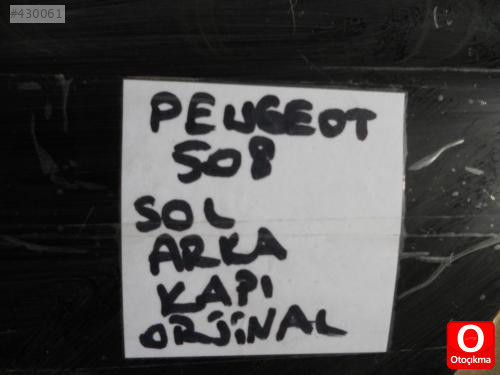 #430061
PEUGEOT
508
SOL
ARKA
KAPI
ORJİNAL
Otoçıkma